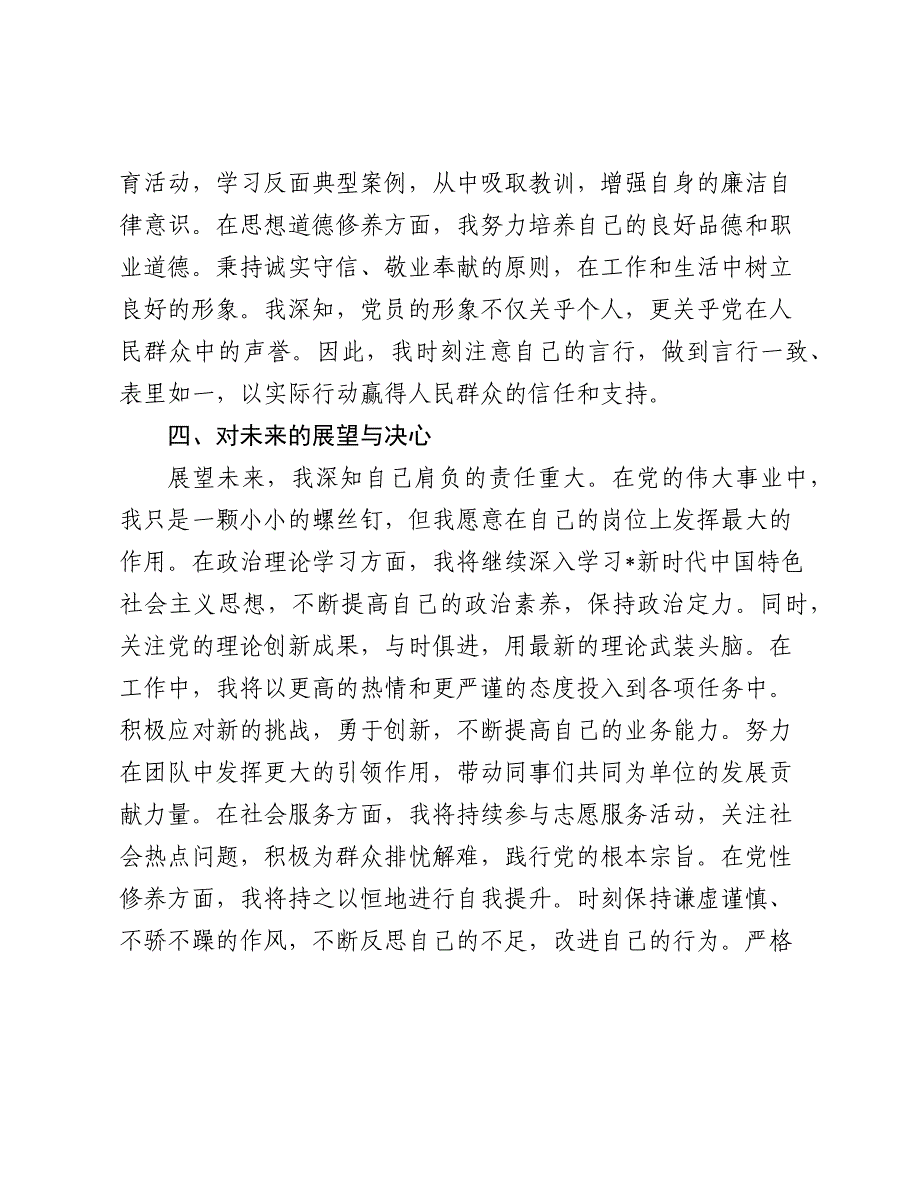 育活动，学习反面典型案例，从中吸取教训，增强自身的廉洁自
律意识。在思想道德修养方面，我努力培养自己的良好品德和职
业道德。秉持诚实守信、敬业奉献的原则，在工作和生活中树立
良好的形象。我深知，党员的形象不仅关乎个人，更关乎党在人
民群众中的声誉。因此，我时刻注意自己的言行，做到言行一致、
表里如一，以实际行动赢得人民群众的信任和支持。
四、对未来的展望与决心
展望未来，我深知自己肩负的责任重大。在党的伟大事业中，
我只是一颗小小的螺丝钉，但我愿意在自己的岗位上发挥最大的
作用。在政治理论学习方面，我将继续深入学习*新时代中国特色
社会主义思想，不断提高自己的政治素养，保持政治定力。同时，
关注党的理论创新成果，与时俱进，用最新的理论武装头脑。在
工作中，我将以更高的热情和更严谨的态度投入到各项任务中。
积极应对新的挑战，勇于创新，不断提高自己的业务能力。努力
在团队中发挥更大的引领作用，带动同事们共同为单位的发展贡
献力量。在社会服务方面，我将持续参与志愿服务活动，关注社
会热点问题，积极为群众排忧解难，践行党的根本宗旨。在党性
修养方面，我将持之以恒地进行自我提升。时刻保持谦虚谨慎、
不骄不躁的作风，不断反思自己的不足，改进自己的行为。严格